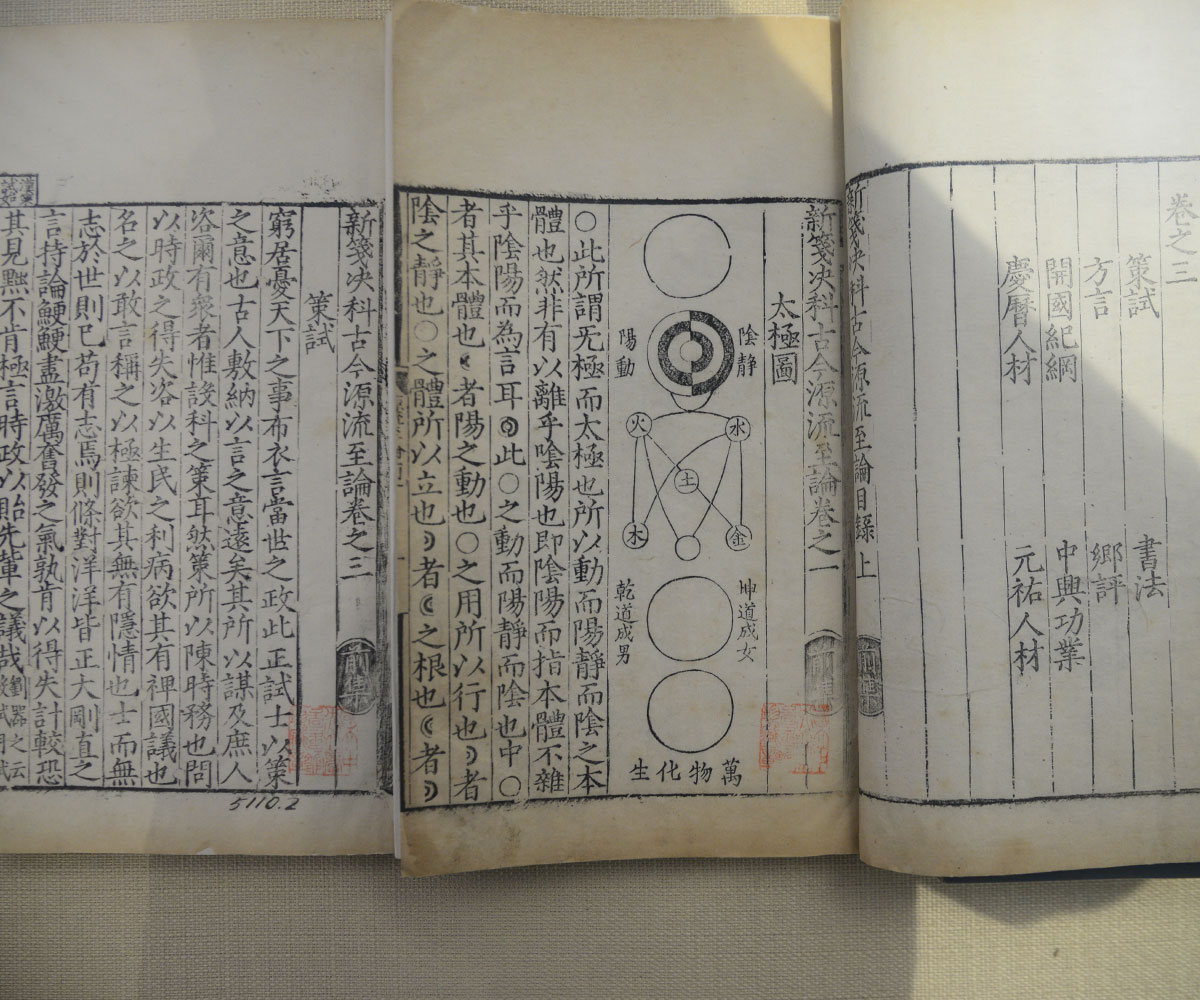 卷之三
策試
書法
方言
鄉評
開國紀綱
中興功業
慶曆人材
元祐人材
新箋决科古今源流至論目錄 上
前集
新箋决科古今源流至論卷之一
前集
太極圖
陰靜
陽動
水
火
土
金
木
坤道成女
乾道成男
萬物化生
○此所謂无極而太極也所以動而陽靜而陰之本
體也然非有以離乎陰陽也即陰陽而指本體不雜
乎陰陽而為言耳 此○之動而陽靜而陰也中○
者其本體也 者陽之動也○之用所以行也 者
陰之靜也○之體所以立也 者 之根也 者
新箋决科古今源流至論卷之三
前集
策試
窮居憂天下之事布衣言當世之政此正試士以策
之意也古人敷納以言之意遠矣其所以謀及庶人
咨爾有衆者惟設科之策耳然策所以陳時務也問
以時政之得失咨以生民之利病欲其有裨國議也
名之以敢言稱之以極諫欲其無有隱情也士而無
志於世則已苟有志焉則條對洋洋皆正大剛直之
言持論鯁鯁盡激厲奮發之氣孰肯以得失計較恐
其見黜不肯極言時政以貽先輩之議哉
5110.2